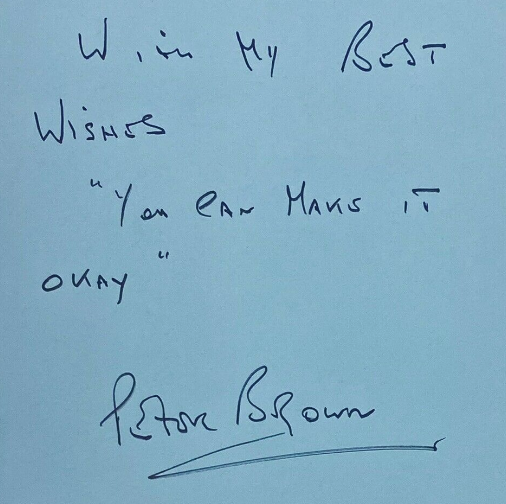 With My BEST
WISHES
"You CAN MAKE IT
OKAY"
PETER BROWN